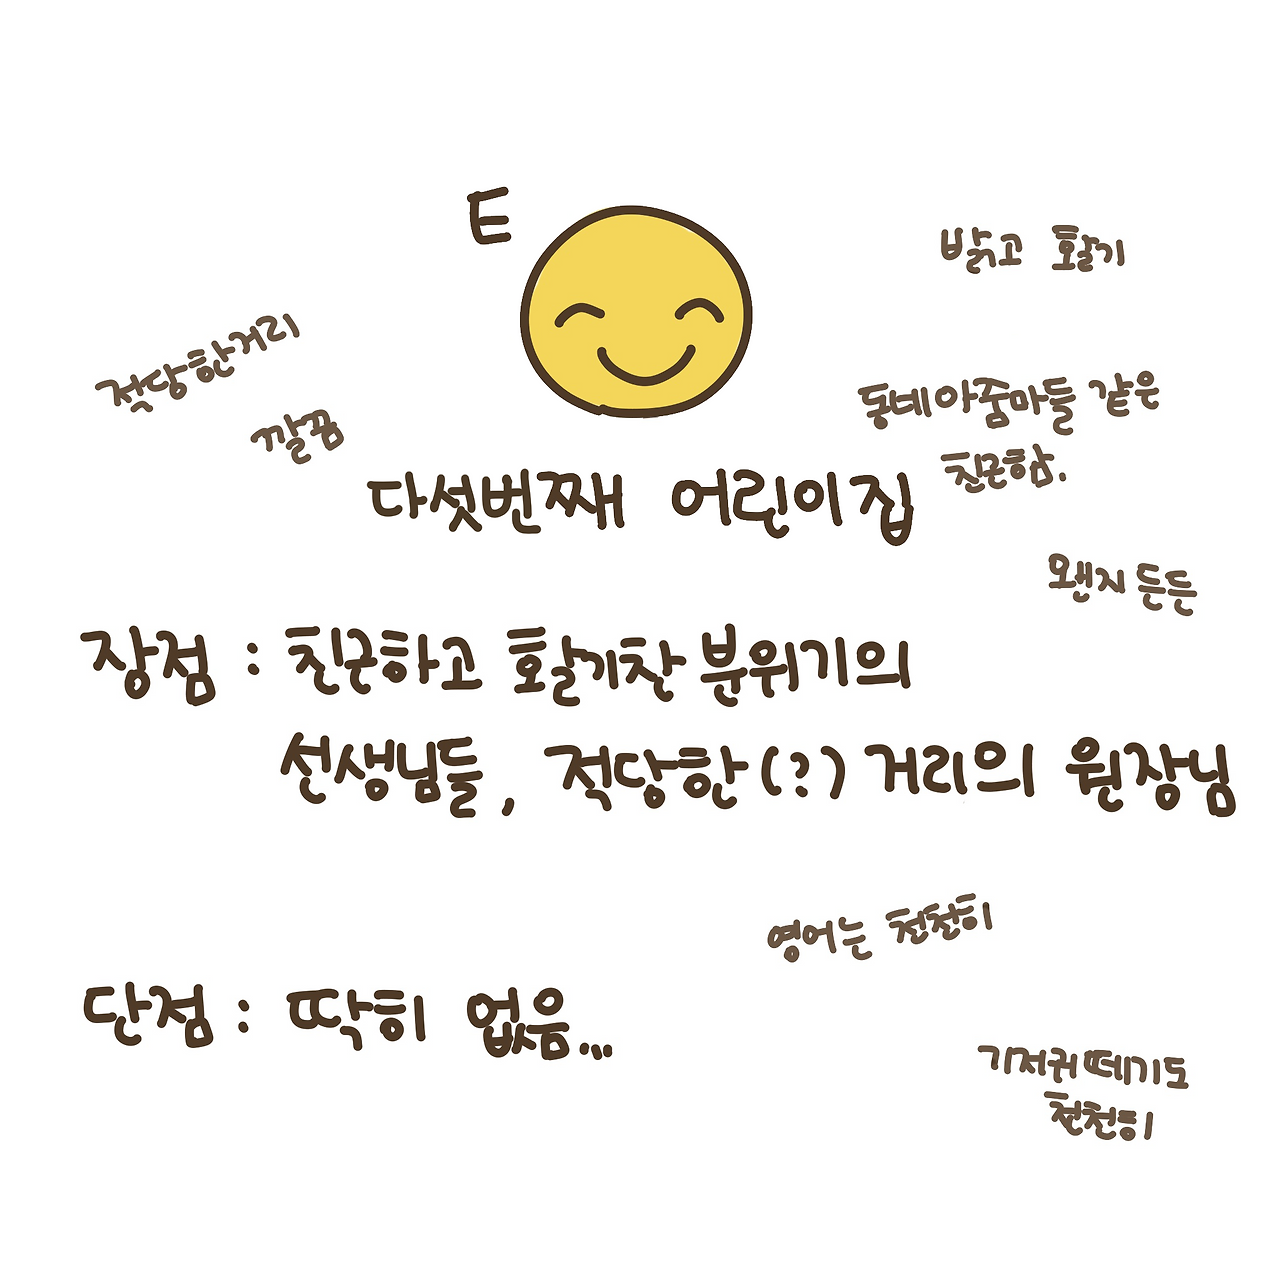 E
밝고 활기
적당한거리
깔끔
동네아줌마들 같은
친근함.
다섯번째 어린이집
왠지 든든
장점 : 친근하고 활기찬 분위기의
선생님들, 적당한(?) 거리의 원장님
영어는 천천히
단점 : 딱히 없음...
기저귀떼기도
천천히